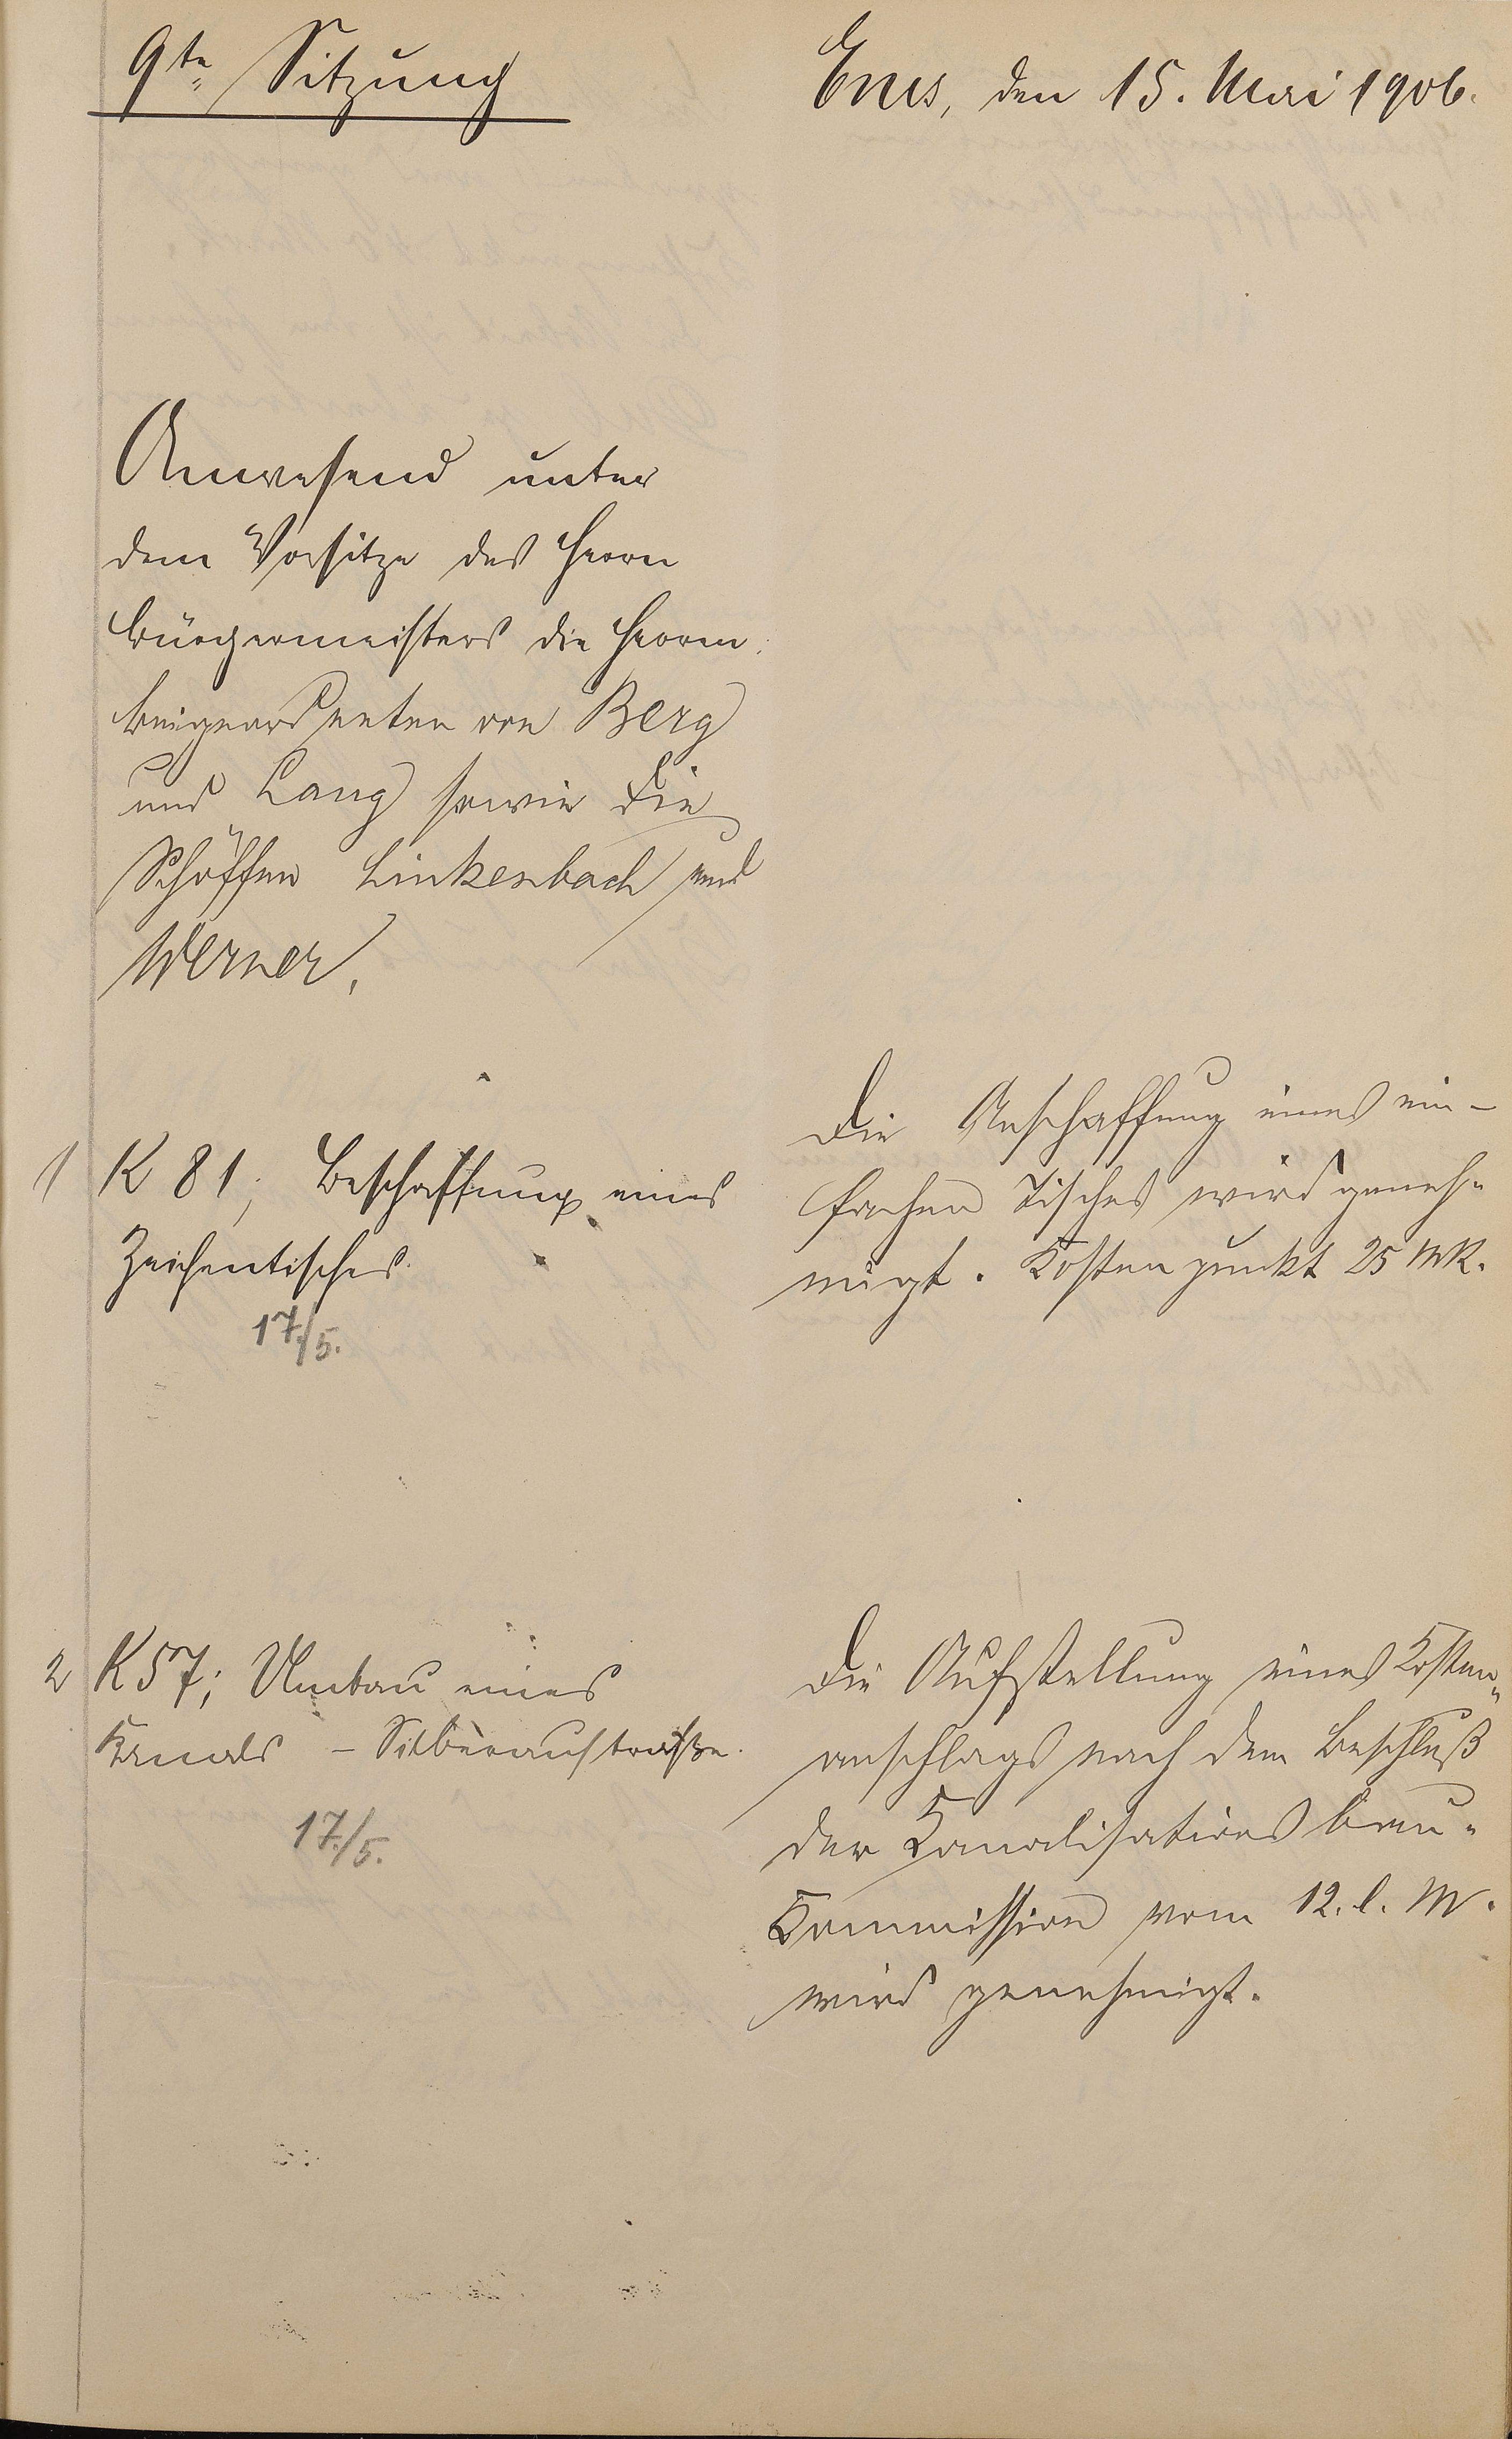 9te Sitzung
Ems, den 15. Mai 1906.
Anwesend unter
dem Vorsitze des Herrn
Bürgermeisters die Herren
Beigeordneten von Berg
und Lang sowie die
Schöffen Linkenbach und
Werner.
1 K 81; Beschaffung eines
Zeichentisches.
17./5.
Die Anschaffung eines ein-
fachen Tisches wird geneh-
migt. Kostenpunkt 25 Mk.
2 K 57; Umbau eines
Kanals – Silberaustraße.
17./5.
Die Aufstellung eines Kosten-
anschlags nach dem Beschluß
der Kanalisations bau-
Kommission vom 12. l. M.
wird genehmigt.